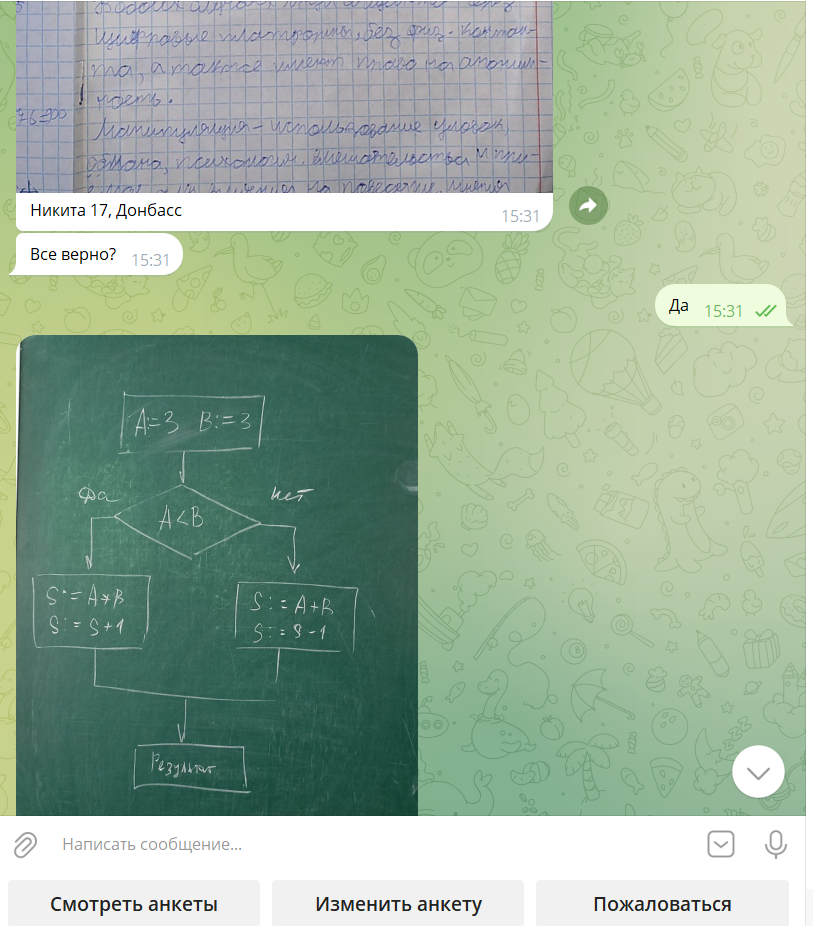 цифровые платформы, без физ. контак-
та, а также имеют право на аноним-
ность.
76-200
Манипуляция - использование уловок,
обмана, психологич. вмешательства и при-
на поведение, мнения
Никита 17, Донбасс
15:31
Все верно?
15:31
Да
15:31
A:=3 B:=3
Да
нет
A<B
S:=A*B
S:=S+1
S:=A+B
S:=S-1
Результат
Написать сообщение...
Смотреть анкеты
Изменить анкету
Пожаловаться